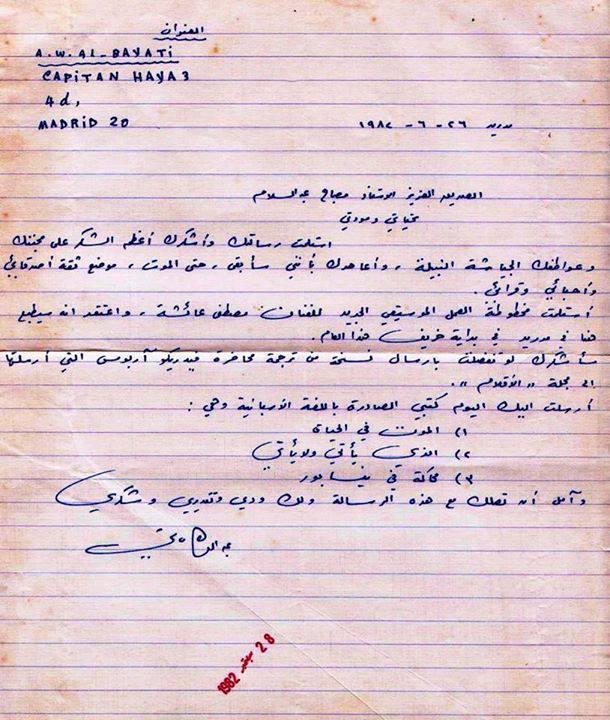 العنوان
A.W. AL-BAYATI
CAPITAN HAYA 3
4 d,
MADRID 20
مدريد ٢٦ - ٦ - ١٩٨٢
الصديق العزيز الاستاذ مصباح عبد السلام
تحياتي ومودتي
استلمت رسالتك وأشكرك أعظم الشكر على محبتك
وعواطفك الجياشة النبيلة، وأعاهدك بأنني سأبقى، حتى الموت، موضع ثقة أصدقائي
وأحبائي وقرائي.
أستلمت مخطوطة العمل الموسيقي الجديد للفنان مصطفى عائشة، واعتقد انه سيطبع
هنا في مدريد في بداية خريف هذا العام.
سأشكرك لو تفضلت بارسال نسخة من ترجمة محاضرة فيدريكو آربوس التي أرسلتها
الى مجلة "الأقلام".
أرسلت اليك اليوم كتبي الصادرة باللغة الأسبانية وهي:
١) الموت في الحياة
٢) الذي يأتي ولا يأتي
٣) محاكمة في نيسابور
وآمل أن تصلك مع هذه الرسالة ولك ودي وتقديري وشكري
28 1982